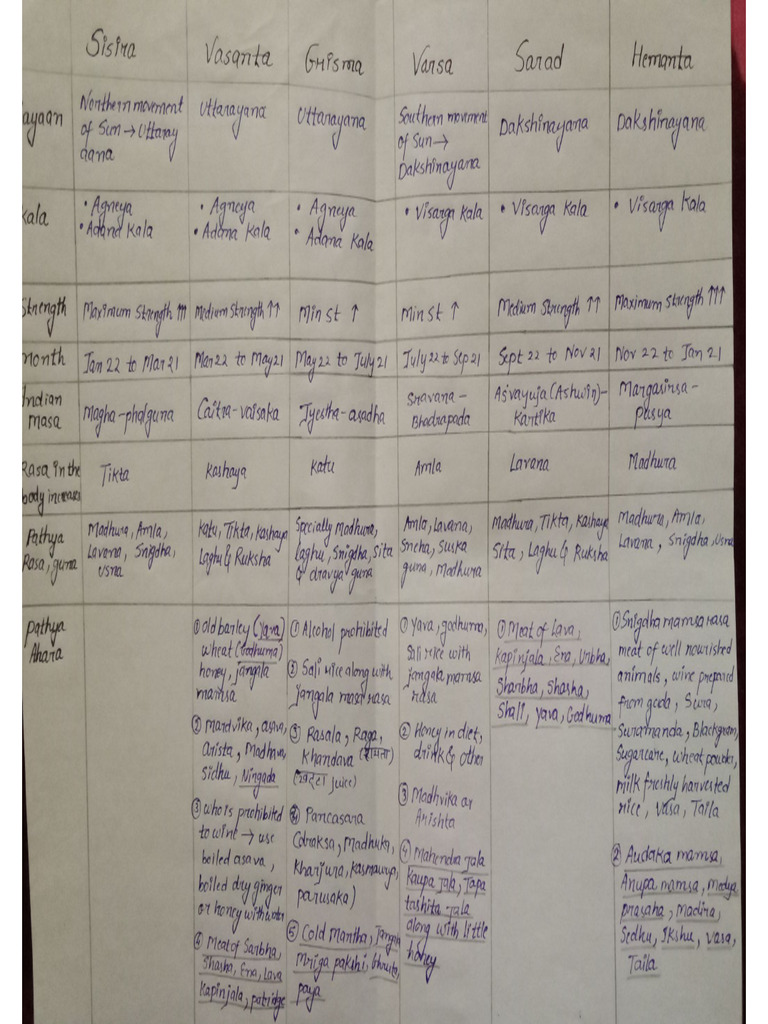 Sisira Vasanta Grisma Varsa Sarad Hemanta
ayaan
Northern movement
of Sun → Uttaray
aana
Uttarayana
Uttarayana
Southern movement
of Sun →
Dakshinayana
Dakshinayana
Dakshinayana
kala
• Agneya
• Adana Kala
• Agneya
• Adana Kala
• Agneya
• Adana Kala
• Visarga Kala
• Visarga Kala
• Visarga Kala
Strength
Maximum Strength ↑↑↑
Medium Strength ↑↑
Min St ↑
Min St ↑
Medium Strength ↑↑
Maximum Strength ↑↑↑
month
Jan 22 to Mar 21
Mar 22 to May 21
May 22 to July 21
July 22 to Sep 21
Sept 22 to Nov 21
Nov 22 to Jan 21
Indian
masa
Magha-phalguna
Caitra-vaisaka
Jyestha-asadha
Sravana-
Bhadrapada
Asvayuja (Ashwin)-
Kartika
Margasirsa-
pusya
Rasa in the
body increases
Tikta
Kashaya
Katu
Amla
Lavana
Madhura
Pathya
Rasa, guna
Madhura, Amla,
Lavana, Snigdha,
Usna
Katu, Tikta, Kashaya
Laghu & Ruksha
Specially Madhura,
laghu, Snigdha, Sita
& dravya guna
Amla, Lavana,
Sneha, Suska
guna, Madhura
Madhura, Tikta, Kashaya
Sita, Laghu & Ruksha
Madhura, Amla,
Lavana, Snigdha, Usna
Pathya
Ahara
① old barley (yava)
wheat (Godhuma)
honey, jangala
mamsa
② mardvika, asava,
arista, Madhava,
Sidhu, Nirgada
③ who is prohibited
to wine → use
boiled asava,
boiled dry ginger
or honey with water
④ Meat of Sarbha,
Shasha, Ena, Lava
Kapinjala, patridge
① Alcohol prohibited
② Sali rice along with
jangala masa rasa
③ Rasala, Raga,
Khandava
juice)
④ Pancasara
(draksa, Madhuka,
Kharjura, Kasmaurya,
parusaka)
⑤ Cold mantha, Jangala
Mriga pakshi,
paya
① Yava, godhuma,
Sali rice with
jangala mamsa
rasa
② Honey in diet,
drink & other
③ Madhvika or
Arishta
④ Mahendra Jala
Kaupa Jala, Tapa
tashita-Jala
along with little
honey
① Meat of Lava,
Kapinjala, Ena, Urbha,
Sharbha, Shasha,
Shali, Yava, Godhuma
① Snigdha mamsa rasa
meat of well nourished
animals, wine prepared
from guda, Sura,
Suramanda, Blackgram,
Sugarcane, wheat powder,
milk freshly harvested
rice, Vasa, Taila
② Audaka mamsa,
Anupa mamsa, Medya
prasaha, Madira,
Sidhu, Ikshu, Vasa,
Taila